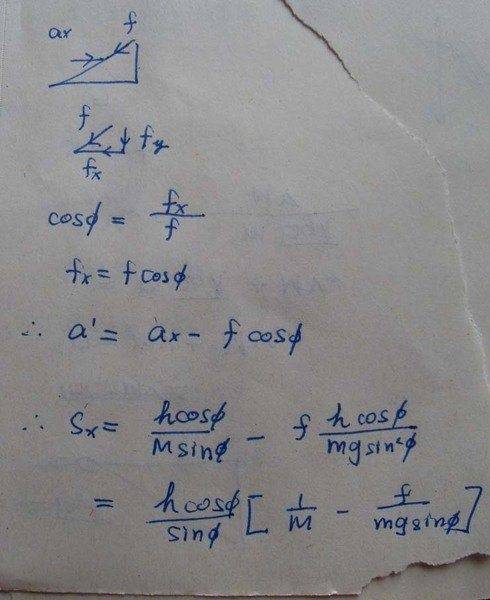 ax f
f fy
fx
cosϕ = fx/f
fx = f cosϕ
∴ a' = ax - f cosϕ
∴ Sx = hcosϕ/Msinϕ - f hcosϕ/mgsin²ϕ
= hcosϕ/sinϕ [1/M - f/mgsinϕ]